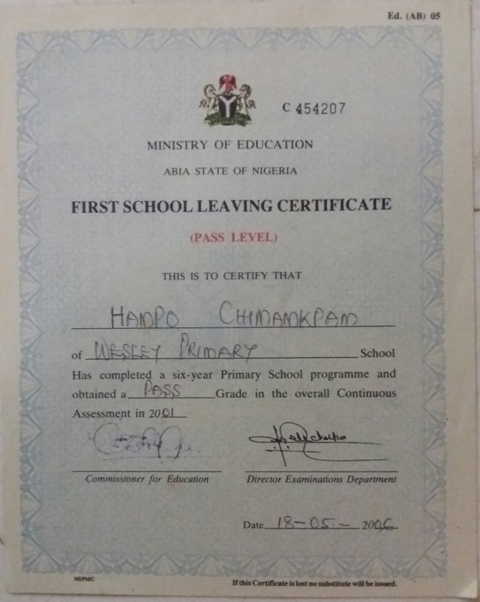 Ed. (AB) 05
C 454207
MINISTRY OF EDUCATION
ABIA STATE OF NIGERIA
FIRST SCHOOL LEAVING CERTIFICATE
(PASS LEVEL)
THIS IS TO CERTIFY THAT
HANPO CHIMAMKPAM
of WESLEY PRIMARY School
Has completed a six-year Primary School programme and
obtained a PASS Grade in the overall Continuous
Assessment in 2001
Commissioner for Education Director Examinations Department
Date 18-05-2006
NSPMC
If this Certificate is lost no substitute will be issued.